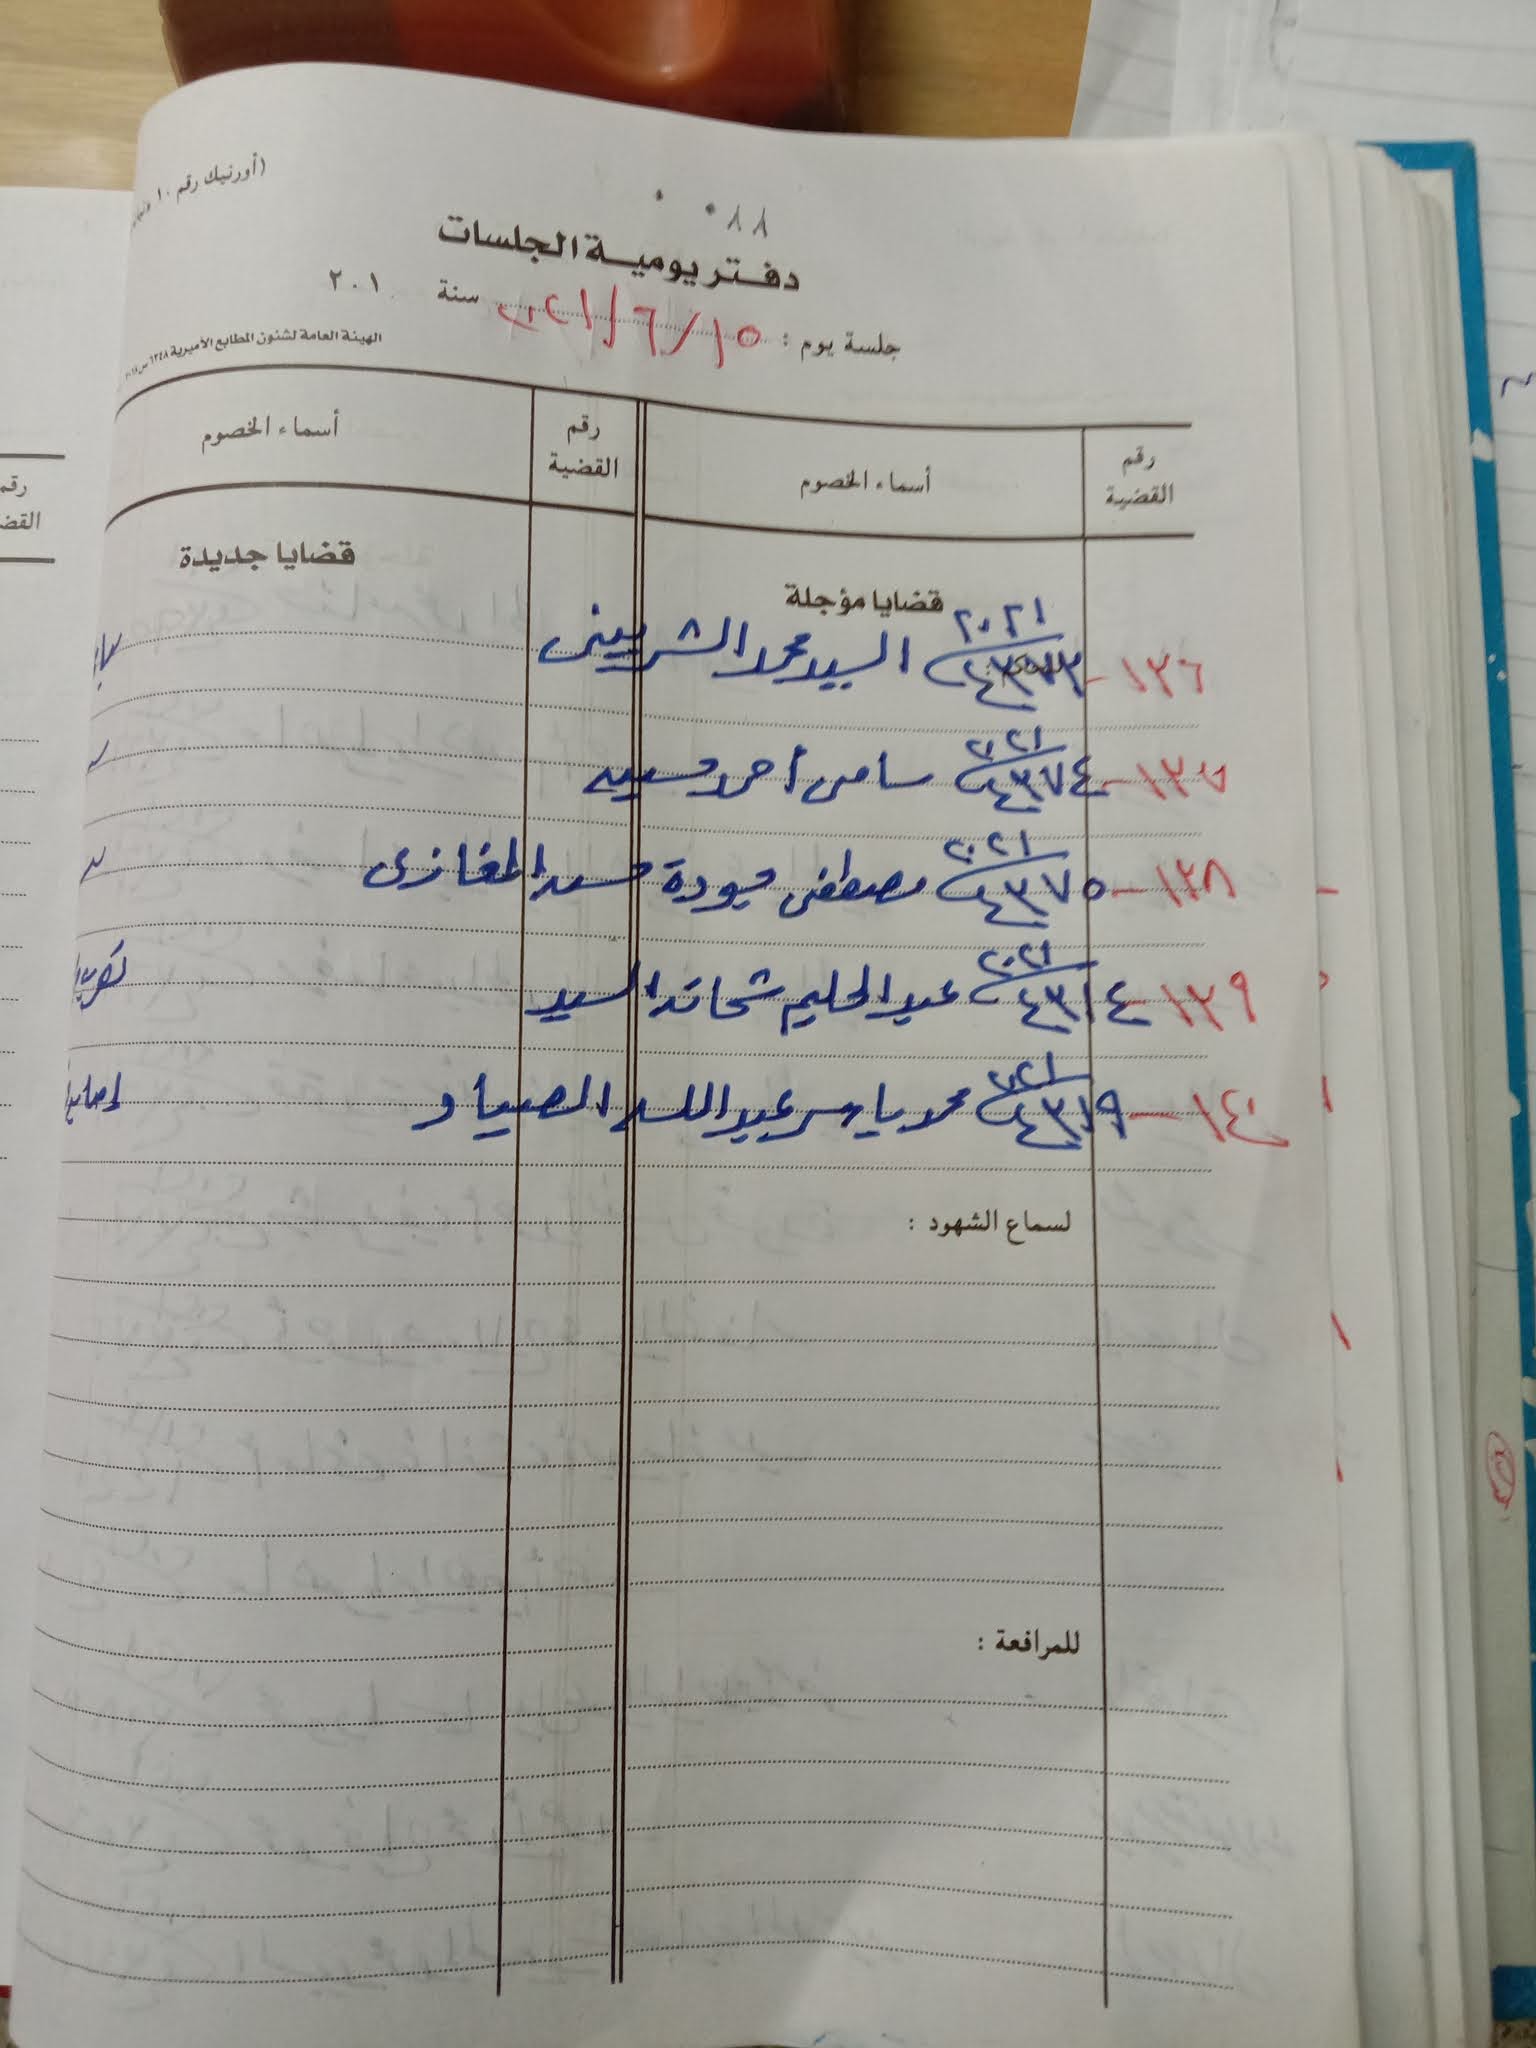 (أورنيك رقم ١٠
٠٨٨
دفتر يومية الجلسات
جلسة يوم : ١٥/٦/٢٠٢١ سنة ٢٠١
الهيئة العامة لشئون المطابع الأميرية
رقم القضية أسماء الخصوم رقم القضية أسماء الخصوم
قضايا مؤجلة قضايا جديدة
١٣٦- ٤٣٧٣ / ٢٠٢١ السيد محمد الشربينى
١٣٧- ٤٣٧٤ / ٢٠٢١ سامى احمد
١٣٨- ٤٣٧٥ / ٢٠٢١ مصطفى حمودة سعد المغازى
١٣٩- ٤٣١٤ / ٢٠٢١ عبد الحليم شحاته السيد
١٤٠- ٤٣١٩ / ٢٠٢١ محمد ياسر عبد الله الصياد
لسماع الشهود :
للمرافعة :
رقم
القض